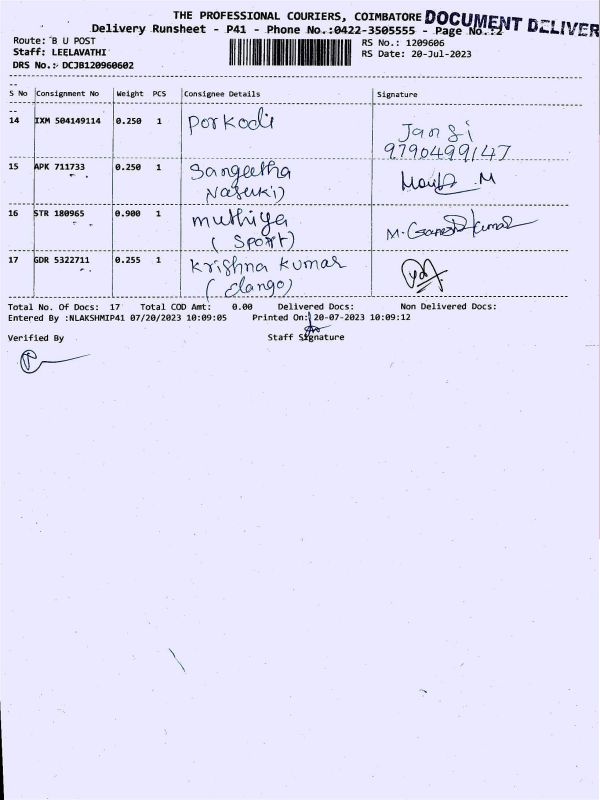 THE PROFESSIONAL COURIERS, COIMBATORE DOCUMENT DELIVER
Delivery Runsheet - P41 - Phone No.:0422-3505555 - Page No.:2
Route: B U POST
RS No.: 1209606
Staff: LEELAVATHI
RS Date: 20-Jul-2023
DRS No.: DCJB120960602
S No Consignment No Weight PCS Consignee Details Signature
14 IXM 504149114 0.250 1 Porkodi Jansi
9790499147
15 APK 711733 0.250 1 Sangeetha
M
16 STR 180965 0.900 1 muthiya M. Ganesh Kumar
( Sport)
17 GDR 5322711 0.255 1 Krishna Kumar
( Elango)
Total No. Of Docs: 17 Total COD Amt: 0.00 Delivered Docs: Non Delivered Docs:
Entered By :NLAKSHMIP41 07/20/2023 10:09:05 Printed On: 20-07-2023 10:09:12
Verified By Staff Signature